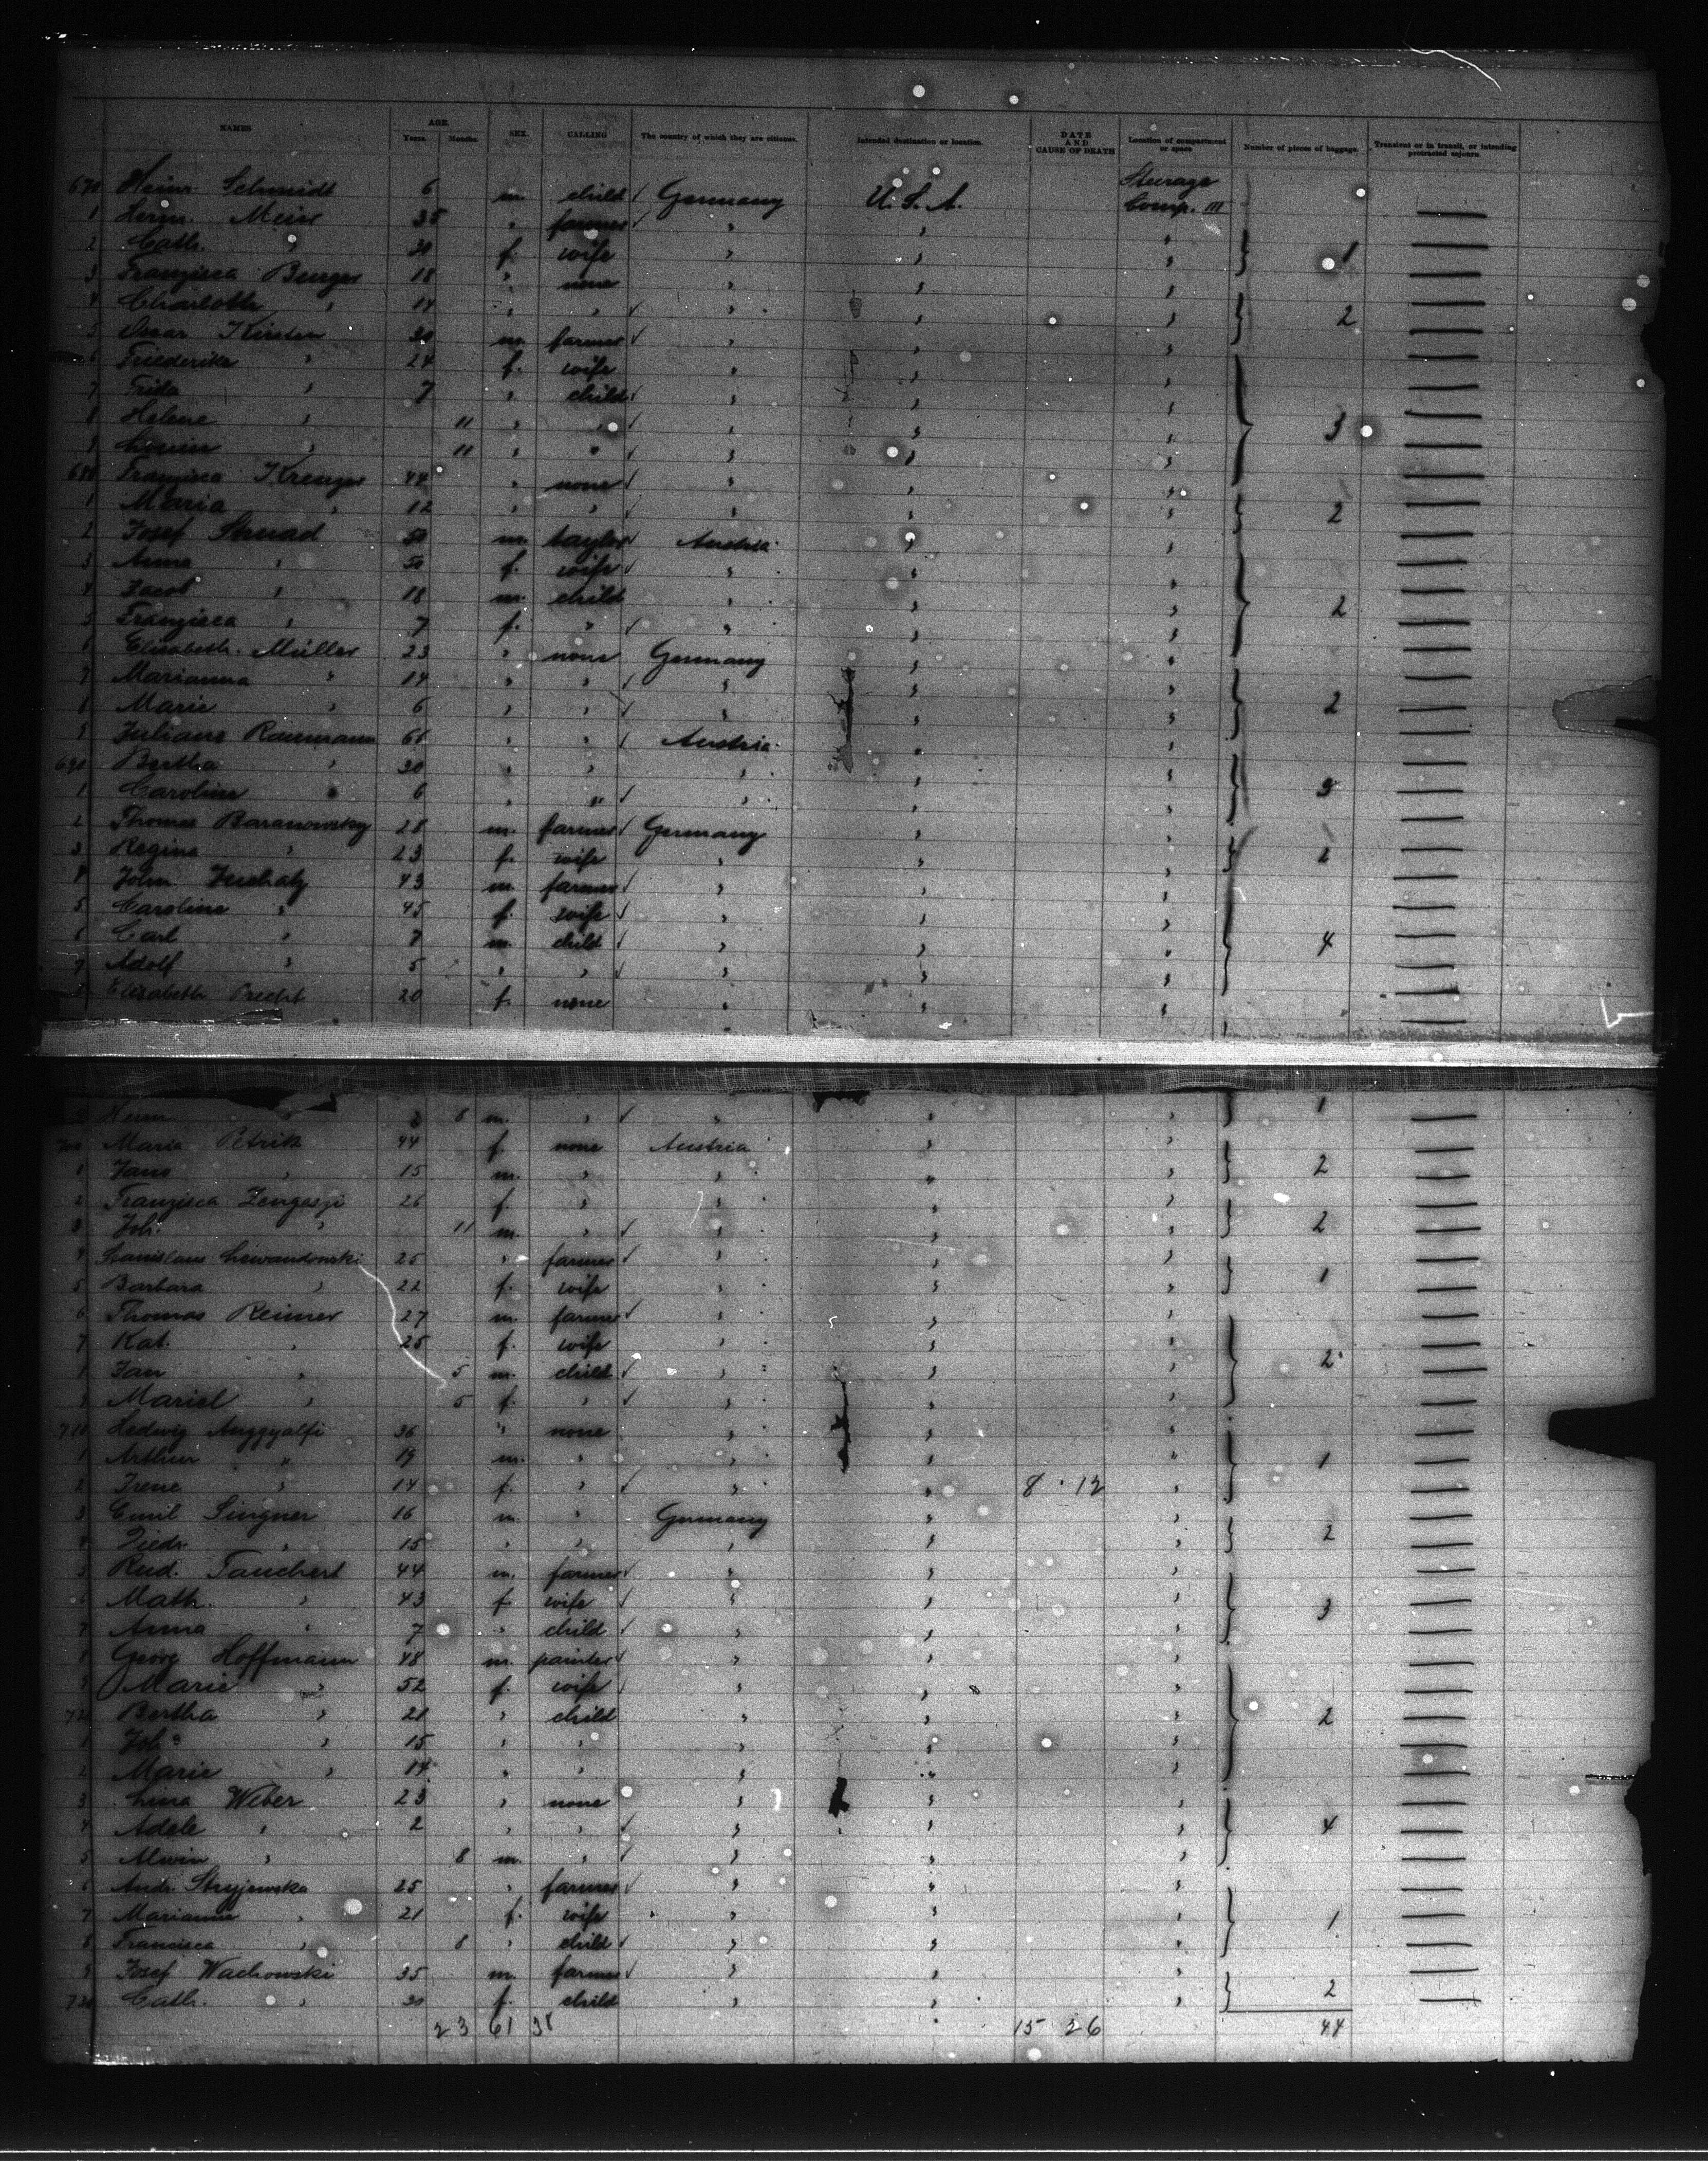 NAMES AGE. Years. Months. SEX. CALLING The country of which they are citizens. Intended destination or location. DATE AND CAUSE OF DEATH Location of compartment or space Number of pieces of baggage. Transient or in transit, or intending protracted sojourn.
670 Heinr. Schmidt 6 m. child Germany U.S.A. Steerage Comp. III
1 Herm. Meise 35 " farmer " "
2 Cath. " 30 f. wife " " 1
3 Franzisca Burger 18 " none " "
4 Charlotte " 14 " " " " 2
5 Oscar Kirsten 30 m. farmer " "
6 Friederike " 24 f. wife " "
7 Frida " 7 " child " "
8 Helene " 11 " " " " 3
9 Louise " 11 " " " "
680 Franzisca Kreuzer 44 " none " "
1 Maria " 12 " " " " 2
2 Josef Strnad 50 m. taylor Austria "
3 Anna " 50 f. wife " "
4 Jacob " 18 m. child " " 2
5 Franzisca " 7 f. " " "
6 Elisabeth Müller 23 " none Germany "
7 Marianna " 14 " " " "
8 Marie " 6 " " " " 2
9 Juliane Raumann " " Austria "
690 Bertha " 30 " " " "
1 Caroline " 6 " " " "
2 Thomas Baranowsky 28 m. farmer Germany "
3 Regina " 23 f. wife " "
4 John 43 m. farmer " "
5 Caroline " 45 f. wife " "
6 Carl " 7 m. child " " 4
7 Adolf " 5 " " " "
8 Elisabeth Precht 20 f. none " "
9 Herm. 8 m. " " " 1
700 Maria Petrik 44 f. none Austria "
1 Jano " 15 m. " " " 2
2 Franzisca 26 f. " " "
3 Joh. " 11 m. " " " 2
4 Stanislaus Lewandowski 25 " farmer " "
5 Barbara " 22 f. wife " " 1
6 Thomas Reimer 27 m. farmer " "
7 Kat. " 25 f. wife " "
8 Jan " 5 m. child " " 2
9 Mariel " 5 f. " " "
710 Hedwig Anggyalfi 36 " none " "
1 Arthur " 19 m. " " " 1
2 Irene " 14 f. " " " 8 . 12
3 Emil Singner 16 m. " Germany "
4 " 15 " " " " 2
5 Rud. Tauchert 44 m. farmer " "
6 Math. " 43 f. wife " " 3
7 Anna " 7 " child " "
8 Georg Hoffmann 48 m. painter " "
9 Marie " 52 f. wife " "
720 Bertha " 21 " child " " 2
1 Joh. " 15 " " " "
2 Marie " 14 " " " "
3 Lina Weber 23 " none " "
4 Adele " 2 " " " " 4
5 Alwin " 8 m. " " "
6 Andr. Stryjewska 25 " farmer " "
7 Marianne " 21 f. wife " " 1
8 Francisca " 8 " child " "
9 Josef Wachowski 35 m. farmer " "
730 Cath. " 30 f. child " " 2
23 61 38 15 26 44